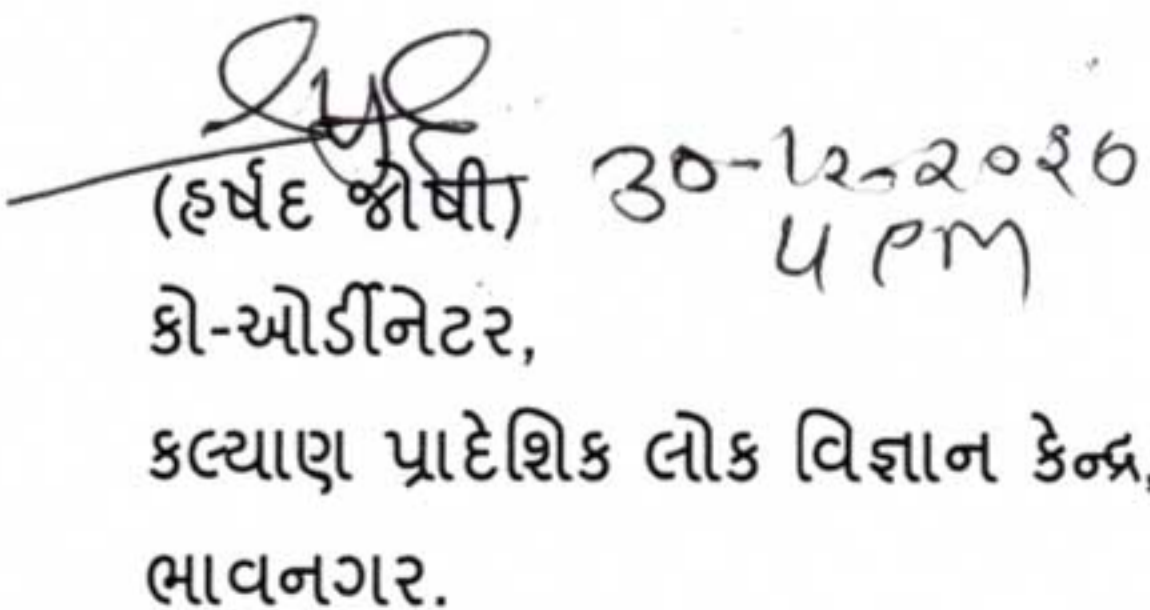 (હર્ષદ જોષી)
30-12-2020
4 PM
કો-ઓર્ડીનેટર,
કલ્યાણ પ્રાદેશિક લોક વિજ્ઞાન કેન્દ્ર,
ભાવનગર.